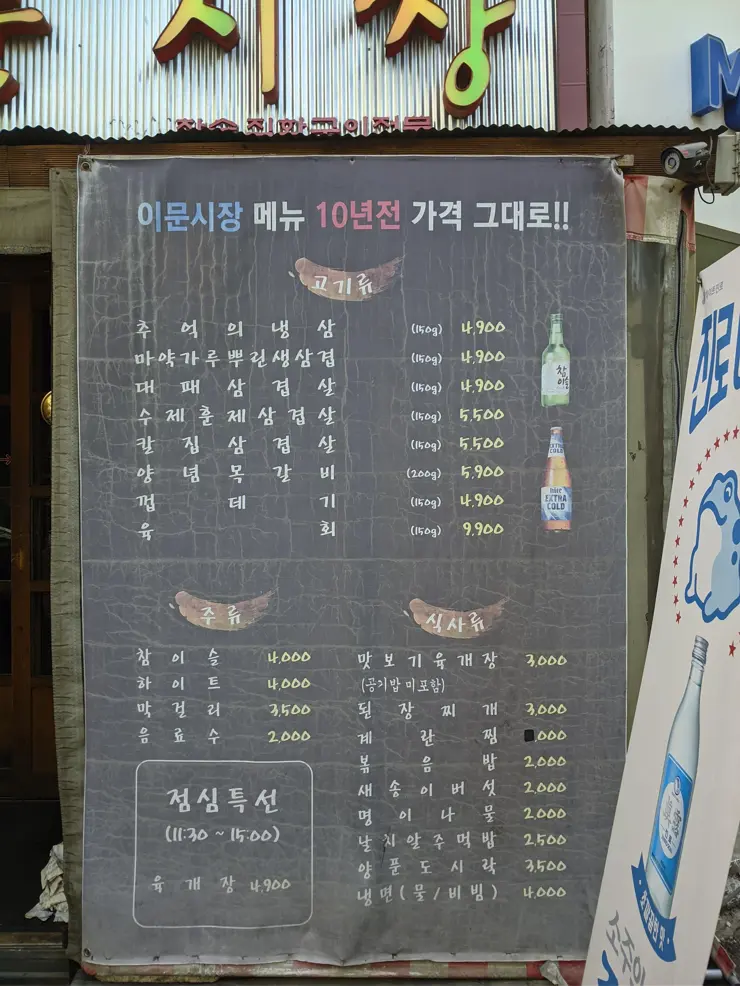 시장
참숯 직화구이전문
이문시장 메뉴 10년전 가격 그대로!!
고기류
추억의냉삼 (150g) 4,900
마약가루뿌린생삼겹 (150g) 4,900
대패삼겹살 (150g) 4,900
수제훈제삼겹살 (150g) 5,500
칼집삼겹살 (150g) 5,500
양념목갈비 (200g) 5,900
껍데기 (150g) 4,900
육회 (150g) 9,900
참이슬
EXTRA COLD
hite
EXTRA
COLD
주류
참이슬 4,000
하이트 4,000
막걸리 3,500
음료수 2,000
점심특선
(11:30 ~ 15:00)
육개장 4,900
식사류
맛보기육개장 3,000
(공기밥 미포함)
된장찌개 3,000
계란찜 ,000
볶음밥 2,000
새송이버섯 2,000
명이나물 2,000
날치알주먹밥 2,500
양푼도시락 3,500
냉면(물/비빔) 4,000
M
진로
소주의